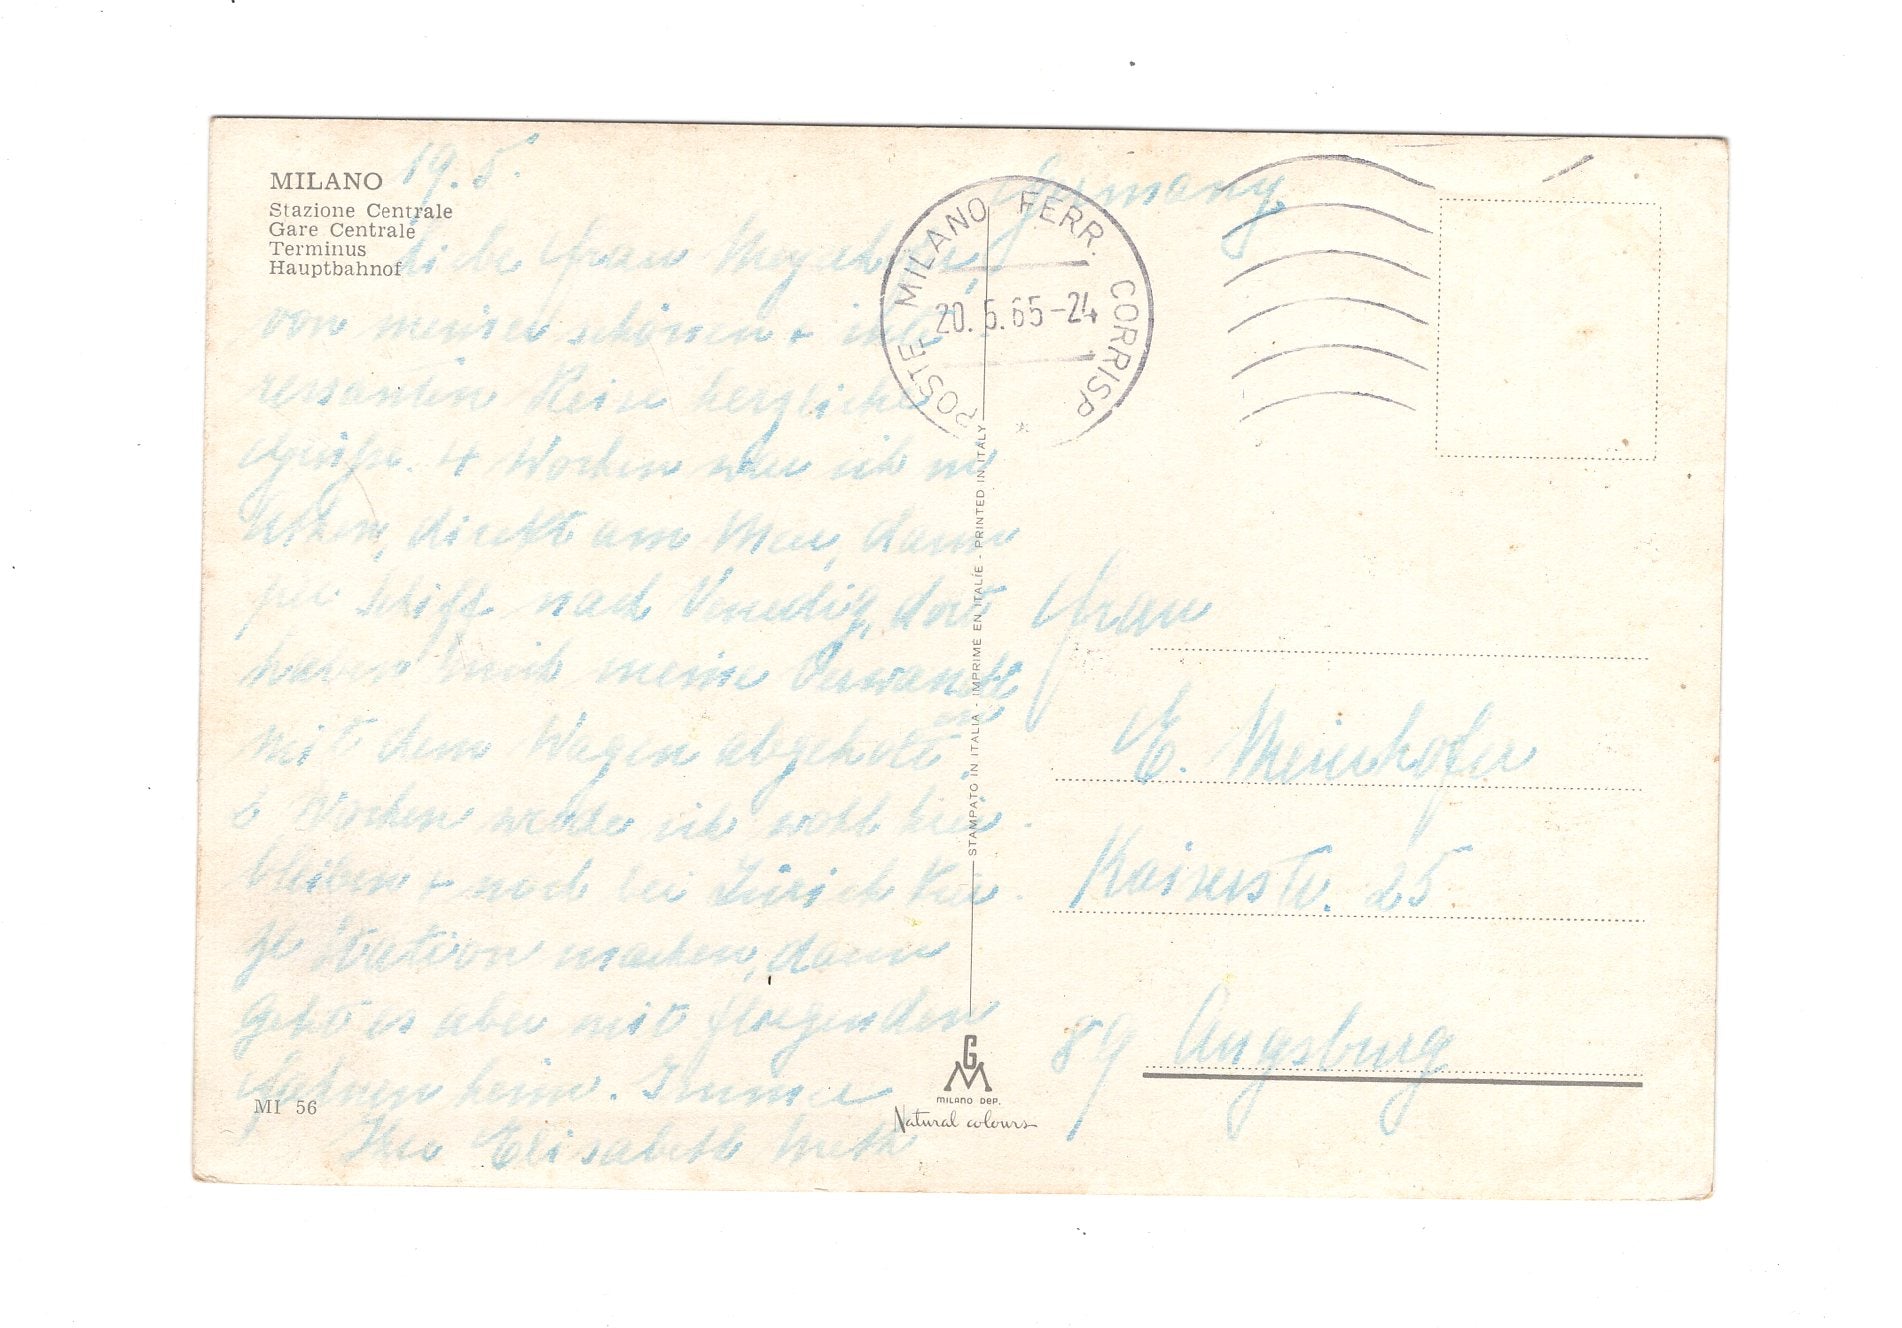 MILANO
Stazione Centrale
Gare Centrale
Terminus
Hauptbahnof
19. 5.
Liebe Frau
von meiner schönen + inte
ressanten Reise herzliche
Grüße. 4 Wochen war ich in
direkt am Meer, dann
per Schiff nach Venedig, dort
haben mich meine Verwandte
mit dem Wagen abgeholt.
Wochen werde ich wohl hier
bleiben + noch bei Zürich
Station machen, dann
geht es aber mit fliegenden
Fahnen heim. Immer
Ihre Elisabeth
MI 56
POSTE MILANO FERR. CORRISP.
20. 5. 65-24
Germany
STAMPATO IN ITALIA - IMPRIMÉ EN ITALIE - PRINTED IN ITALY
GM
MILANO DEP.
Natural colours
Frau
E. Meierhofer
Kaiserstr. 25
89 Augsburg